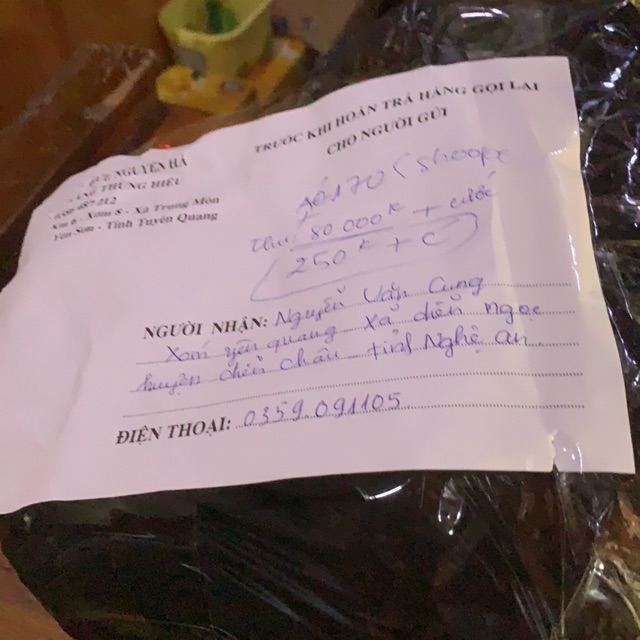 NGUYÊN HÀ
TRUNG HIẾU
Xóm 8 - Xã Trung Môn
Yên Sơn - Tỉnh Tuyên Quang
TRƯỚC KHI HOÀN TRẢ HÀNG GỌI LẠI
CHO NGƯỜI GỬI
170 (Shoope
thu 80 000K + cước
250K + C
NGƯỜI NHẬN: Nguyễn Văn Cung
Xóm yên quang Xã diễn ngọc
huyện diễn Châu tỉnh Nghệ An
ĐIỆN THOẠI: 0359.091105